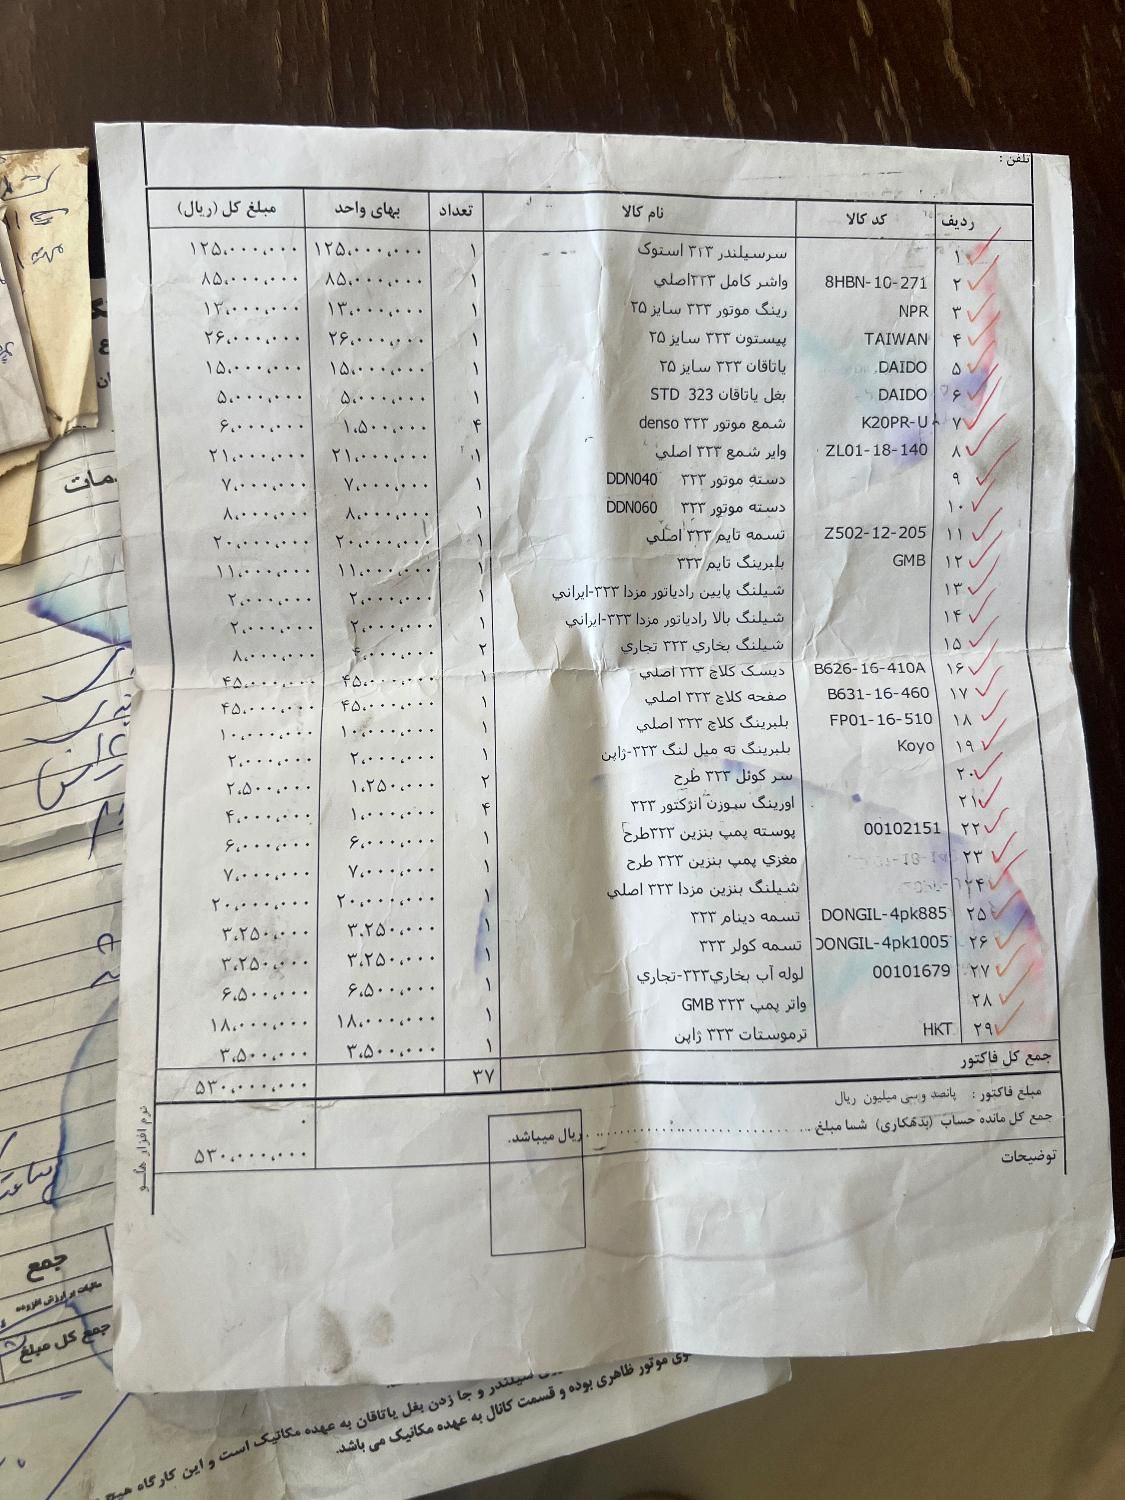 تلفن :
ردیف کد کالا نام کالا تعداد بهای واحد مبلغ کل (ریال)
۱ سرسیلندر ۳۲۳ استوک ۱ ۱۲۵,۰۰۰,۰۰۰ ۱۲۵,۰۰۰,۰۰۰
۲ 8HBN-10-271 واشر کامل ۳۲۳اصلي ۱ ۸۵,۰۰۰,۰۰۰ ۸۵,۰۰۰,۰۰۰
۳ NPR رینگ موتور ۳۲۳ سایز ۲۵ ۱ ۱۳,۰۰۰,۰۰۰ ۱۳,۰۰۰,۰۰۰
۴ TAIWAN پیستون ۳۲۳ سایز ۲۵ ۱ ۲۶,۰۰۰,۰۰۰ ۲۶,۰۰۰,۰۰۰
۵ DAIDO یاتاقان ۳۲۳ سایز ۲۵ ۱ ۱۵,۰۰۰,۰۰۰ ۱۵,۰۰۰,۰۰۰
۶ DAIDO بغل یاتاقان 323 STD ۱ ۵,۰۰۰,۰۰۰ ۵,۰۰۰,۰۰۰
۷ K20PR-U شمع موتور ۳۲۳ denso ۴ ۱,۵۰۰,۰۰۰ ۶,۰۰۰,۰۰۰
۸ ZL01-18-140 وایر شمع ۳۲۳ اصلي ۱ ۲۱,۰۰۰,۰۰۰ ۲۱,۰۰۰,۰۰۰
۹ دسته موتور ۳۲۳ DDN040 ۱ ۷,۰۰۰,۰۰۰ ۷,۰۰۰,۰۰۰
۱۰ دسته موتور ۳۲۳ DDN060 ۱ ۸,۰۰۰,۰۰۰ ۸,۰۰۰,۰۰۰
۱۱ Z502-12-205 تسمه تایم ۳۲۳ اصلي ۱ ۲۰,۰۰۰,۰۰۰ ۲۰,۰۰۰,۰۰۰
۱۲ GMB بلبرینگ تایم ۳۲۳ ۱ ۱۱,۰۰۰,۰۰۰ ۱۱,۰۰۰,۰۰۰
۱۳ شیلنگ پایین رادیاتور مزدا ۳۲۳-ایراني ۱ ۲,۰۰۰,۰۰۰ ۲,۰۰۰,۰۰۰
۱۴ شیلنگ بالا رادیاتور مزدا ۳۲۳-ایراني ۱ ۲,۰۰۰,۰۰۰ ۲,۰۰۰,۰۰۰
۱۵ شیلنگ بخاري ۳۲۳ تجاري ۲ ۴,۰۰۰,۰۰۰ ۸,۰۰۰,۰۰۰
۱۶ B626-16-410A دیسک کلاچ ۳۲۳ اصلي ۱ ۴۵,۰۰۰,۰۰۰ ۴۵,۰۰۰,۰۰۰
۱۷ B631-16-460 صفحه کلاچ ۳۲۳ اصلي ۱ ۴۵,۰۰۰,۰۰۰ ۴۵,۰۰۰,۰۰۰
۱۸ FP01-16-510 بلبرینگ کلاچ ۳۲۳ اصلي ۱ ۱۰,۰۰۰,۰۰۰ ۱۰,۰۰۰,۰۰۰
۱۹ Koyo بلبرینگ ته میل لنگ ۳۲۳-ژاپن ۱ ۲,۰۰۰,۰۰۰ ۲,۰۰۰,۰۰۰
۲۰ سر کوئل ۳۲۳ طرح ۲ ۱,۲۵۰,۰۰۰ ۲,۵۰۰,۰۰۰
۲۱ اورینگ سوزن انژکتور ۳۲۳ ۴ ۱,۰۰۰,۰۰۰ ۴,۰۰۰,۰۰۰
۲۲ 00102151 پوسته پمپ بنزین ۳۲۳طرح ۱ ۶,۰۰۰,۰۰۰ ۶,۰۰۰,۰۰۰
۲۳ مغزي پمپ بنزین ۳۲۳ طرح ۱ ۷,۰۰۰,۰۰۰ ۷,۰۰۰,۰۰۰
۲۴ شیلنگ بنزین مزدا ۳۲۳ اصلي ۱ ۲۰,۰۰۰,۰۰۰ ۲۰,۰۰۰,۰۰۰
۲۵ DONGIL-4pk885 تسمه دینام ۳۲۳ ۱ ۳,۲۵۰,۰۰۰ ۳,۲۵۰,۰۰۰
۲۶ DONGIL-4pk1005 تسمه کولر ۳۲۳ ۱ ۳,۲۵۰,۰۰۰ ۳,۲۵۰,۰۰۰
۲۷ 00101679 لوله آب بخاري۳۲۳-تجاري ۱ ۶,۵۰۰,۰۰۰ ۶,۵۰۰,۰۰۰
۲۸ واتر پمپ ۳۲۳ GMB ۱ ۱۸,۰۰۰,۰۰۰ ۱۸,۰۰۰,۰۰۰
۲۹ HKT ترموستات ۳۲۳ ژاپن ۱ ۳,۵۰۰,۰۰۰ ۳,۵۰۰,۰۰۰
جمع کل فاکتور ۳۷ ۵۳۰,۰۰۰,۰۰۰
مبلغ فاکتور : پانصد و سی میلیون ریال ۰
جمع کل مانده حساب (بدهکاری) شما مبلغ .......... ریال میباشد. ۵۳۰,۰۰۰,۰۰۰
توضیحات
نرم افزار هلو
جمع
مالیات بر ارزش افزوده
جمع کل مبلغ
سیلندر و جا زدن بغل یاتاقان به عهده مکانیک است و این کارگاه هیچ
موتور ظاهری بوده و قسمت کانال به عهده مکانیک می باشد.